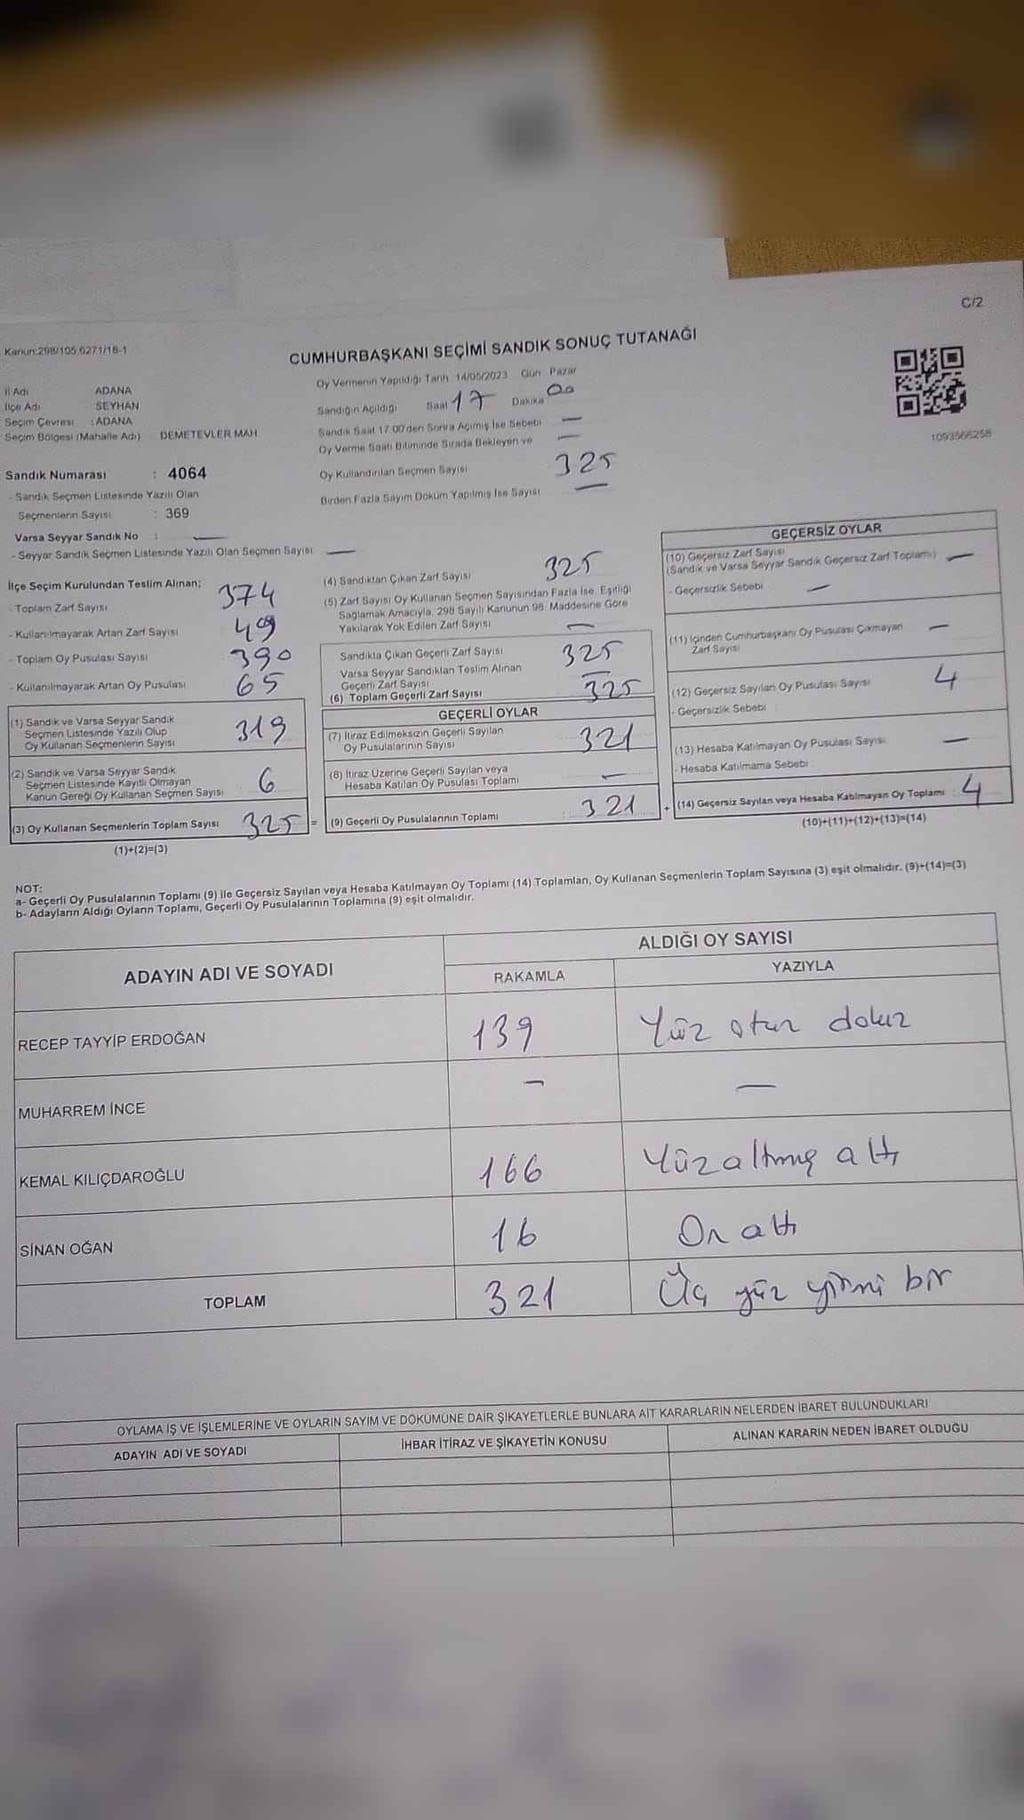 C/2
Kanun:298/105,6271/18-1
CUMHURBAŞKANI SEÇİMİ SANDIK SONUÇ TUTANAĞI
İl Adı ADANA
İlçe Adı SEYHAN
Seçim Çevresi : ADANA
Seçim Bölgesi (Mahalle Adı) DEMETEVLER MAH
Oy Vermenin Yapıldığı Tarih 14/05/2023 Gün Pazar
Sandığın Açıldığı Saat 17 Dakika 00
Sandık Saat 17:00'den Sonra Açımış İse Sebebi —
Oy Verme Saati Bitiminde Sırada Bekleyen ve —
Oy Kullandırılan Seçmen Sayısı 325
Birden Fazla Sayım Döküm Yapılmış İse Sayısı —
1093566258
Sandık Numarası : 4064
- Sandık Seçmen Listesinde Yazılı Olan
Seçmenlerin Sayısı : 369
Varsa Seyyar Sandık No : —
- Seyyar Sandık Seçmen Listesinde Yazılı Olan Seçmen Sayısı —
İlçe Seçim Kurulundan Teslim Alınan;
- Toplam Zarf Sayısı 374
- Kullanılmayarak Artan Zarf Sayısı 49
- Toplam Oy Pusulası Sayısı 390
- Kullanılmayarak Artan Oy Pusulası 65
(1) Sandık ve Varsa Seyyar Sandık
Seçmen Listesinde Yazılı Olup
Oy Kullanan Seçmenlerin Sayısı 319
(2) Sandık ve Varsa Seyyar Sandık
Seçmen Listesinde Kayıtlı Olmayan
Kanun Gereği Oy Kullanan Seçmen Sayısı 6
(3) Oy Kullanan Seçmenlerin Toplam Sayısı 325 =
(1)+(2)=(3)
(4) Sandıktan Çıkan Zarf Sayısı 325
(5) Zarf Sayısı Oy Kullanan Seçmen Sayısından Fazla İse, Eşitliği
Sağlamak Amacıyla, 298 Sayılı Kanunun 98. Maddesine Göre
Yakılarak Yok Edilen Zarf Sayısı —
Sandıkta Çıkan Geçerli Zarf Sayısı 325
Varsa Seyyar Sandıktan Teslim Alınan
Geçerli Zarf Sayısı —
(6) Toplam Geçerli Zarf Sayısı 325
GEÇERLİ OYLAR
(7) İtiraz Edilmeksizin Geçerli Sayılan
Oy Pusulalarının Sayısı 321
(8) İtiraz Üzerine Geçerli Sayılan veya
Hesaba Katılan Oy Pusulası Toplamı —
(9) Geçerli Oy Pusulalarının Toplamı 321 +
GEÇERSİZ OYLAR
(10) Geçersiz Zarf Sayısı
(Sandık ve Varsa Seyyar Sandık Geçersiz Zarf Toplamı) —
- Geçersizlik Sebebi —
(11) İçinden Cumhurbaşkanı Oy Pusulası Çıkmayan
Zarf Sayısı —
(12) Geçersiz Sayılan Oy Pusulası Sayısı 4
- Geçersizlik Sebebi
(13) Hesaba Katılmayan Oy Pusulası Sayısı —
- Hesaba Katılmama Sebebi
(14) Geçersiz Sayılan veya Hesaba Katılmayan Oy Toplamı : 4
(10)+(11)+(12)+(13)=(14)
NOT:
a- Geçerli Oy Pusulalarının Toplamı (9) ile Geçersiz Sayılan veya Hesaba Katılmayan Oy Toplamı (14) Toplamları, Oy Kullanan Seçmenlerin Toplam Sayısına (3) eşit olmalıdır. (9)+(14)=(3)
b- Adayların Aldığı Oyların Toplamı, Geçerli Oy Pusulalarının Toplamına (9) eşit olmalıdır.
ADAYIN ADI VE SOYADI ALDIĞI OY SAYISI
RAKAMLA YAZIYLA
RECEP TAYYİP ERDOĞAN 139 Yüz otuz dokuz
MUHARREM İNCE — —
KEMAL KILIÇDAROĞLU 166 Yüzaltmış altı
SİNAN OĞAN 16 On altı
TOPLAM 321 Üç yüz yirmi bir
OYLAMA İŞ VE İŞLEMLERİNE VE OYLARIN SAYIM VE DÖKÜMÜNE DAİR ŞİKAYETLERLE BUNLARA AİT KARARLARIN NELERDEN İBARET BULUNDUKLARI
ADAYIN ADI VE SOYADI İHBAR İTİRAZ VE ŞİKAYETİN KONUSU ALINAN KARARIN NEDEN İBARET OLDUĞU